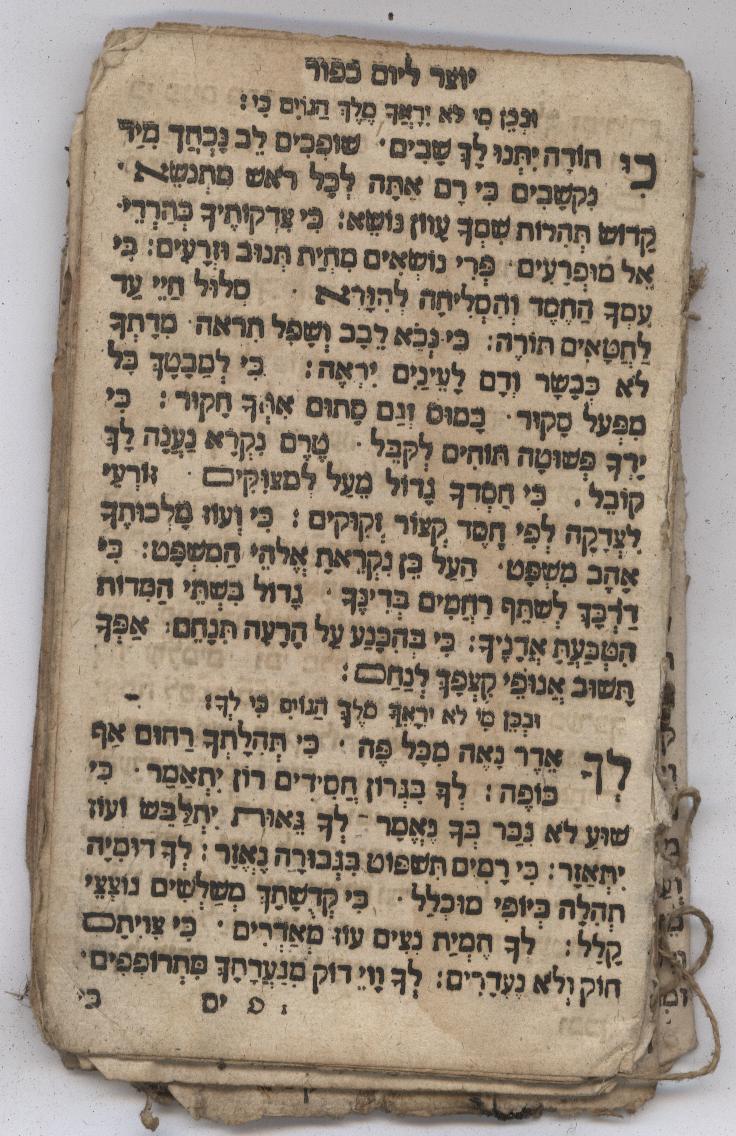 יוצר ליום כפור
ובכן מי לא יראך מלך הגוים כי:
כי תודה יתנו לך שבים· שופכים לב נכחך מיד
נקשבים כי רם אתה לכל ראש מתנשא
קדוש תהלות שמך עוון נושא: כי צדקותיך כהררי
אל מופרעים· פרי נושאים מחית תנוב וזרעים: כי
עמך החסד והסליחה להורא· סלול חיי עד
לחטאים תורה: כי נכא לבב ושפל תראה· מדתך
לא כבשר ודם לעינים יראה: כי למבטך כל
מפעל סקור· כמוס וגם סתום אתה חקור: כי
ידך פשוטה תוהים לקבל· טרם נקרא נענה לך
קובל· כי חסדך גדול מעל למצוקים· זורעי
לצדקה לפי חסד קצור זקוקים: כי ועוז מלכותך
אהב משפט· העל כן נקראת אלהי המשפט: כי
דרכך לשתף רחמים בדינך· גדול בשתי המדות
הטבעת אדניך: כי בהכנע על הרעה תנחם· אפך
תשוב אנופי קצפך לנחם:
ובכן מי לא יראך מלך הגוים כי לך:
לך אדר נאה מכל פה· כי תהלתך רחום אף
כופה: לך בגרון חסידים רון יתאמר· כי
שוע לא נכר בך נאמר· לך גאות יתלבש ועוז
יתאזר: כי רמים תשפוט בגבורה נאזר: לך דומיה
תהלה כיופי מוכלל· כי קדשתך משלשים נוצצי
קלל: לך המית נצים עוז מאדרים· כי צויתם
חוק ולא נעדרים: לך ווי דוק מנערתך מתרופפים·
ים כי